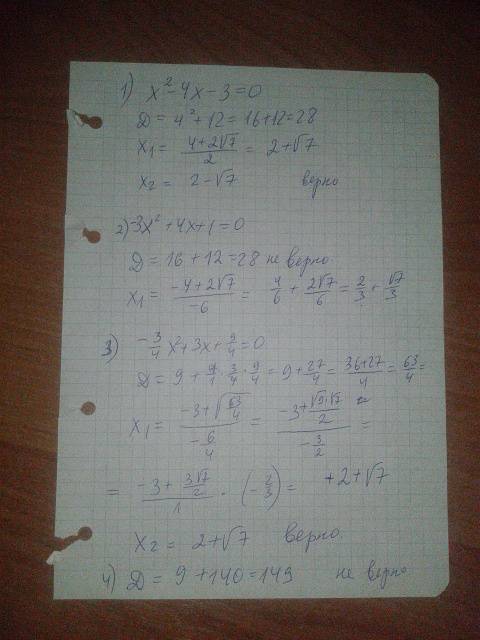 1) x² - 4x - 3 = 0
D = 4² + 12 = 16 + 12 = 28
x₁ = (4 + 2√7)/2 = 2 + √7
x₂ = 2 - √7 верно
2) -3x² + 4x + 1 = 0
D = 16 + 12 = 28 не верно.
x₁ = (-4 + 2√7)/-6 = 4/6 + 2√7/6 = 2/3 + √7/3
3) -3/4 x² + 3x + 9/4 = 0
D = 9 + 4/1 · 3/4 · 9/4 = 9 + 27/4 = (36 + 27)/4 = 63/4 =
x₁ = (-3 + √(63/4))/(-6/4) = (-3 + √9·√7/2)/(-3/2) =
= (-3 + 3√7/2)/1 · (-2/3) = +2 + √7
x₂ = 2 + √7 верно.
4) D = 9 + 140 = 149 не верно